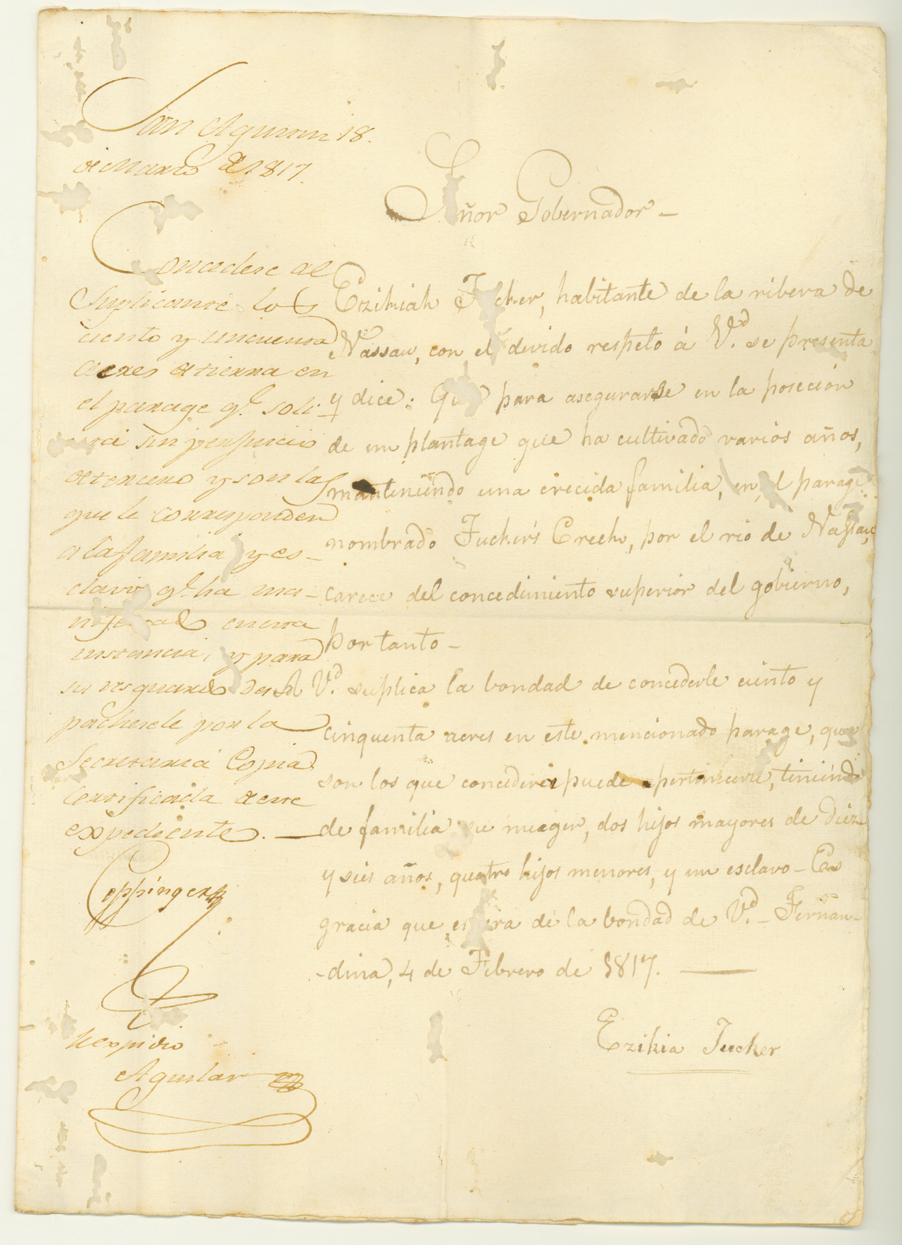 San Agustin 18.
de Marzo de 1817.
Concedese al
Suplicante los
ciento y cincuenta
acres de tierra en
el parage qe. soli-
cita sin perjuicio
de tercero y son las
que le corresponden
a la familia y es-
clavo qe. ha ma-
nifestado en esta
instancia, y para
su resguardo des-
pachesele por la
Secretaria Copia
Certificada de este
expediente.
Coppinger
Aguilar
Señor Gobernador
Ezikiah Tucker, habitante de la ribera de
Nassau, con el divido respeto á Vd. se presenta
y dice: Que para asegurarse en la poseción
de un plantage que ha cultivado varios años,
manteniendo una crecida familia, en el parage
nombrado Tucker's Creek, por el rio de Nassau,
carece del concedimiento superior del gobierno,
por tanto
A Vd. suplica la bondad de concederle ciento y
cinquenta acres en este mencionado parage, que
son los que concederi puede apertenecerle, teniendo
de familia su muger, dos hijos mayores de diez
y seis años, quatro hijos menores, y un esclavo - Es
gracia que espera de la bondad de Vd. - Fernan-
-dina, 4 de Febrero de 1817.
Ezikia Tucker